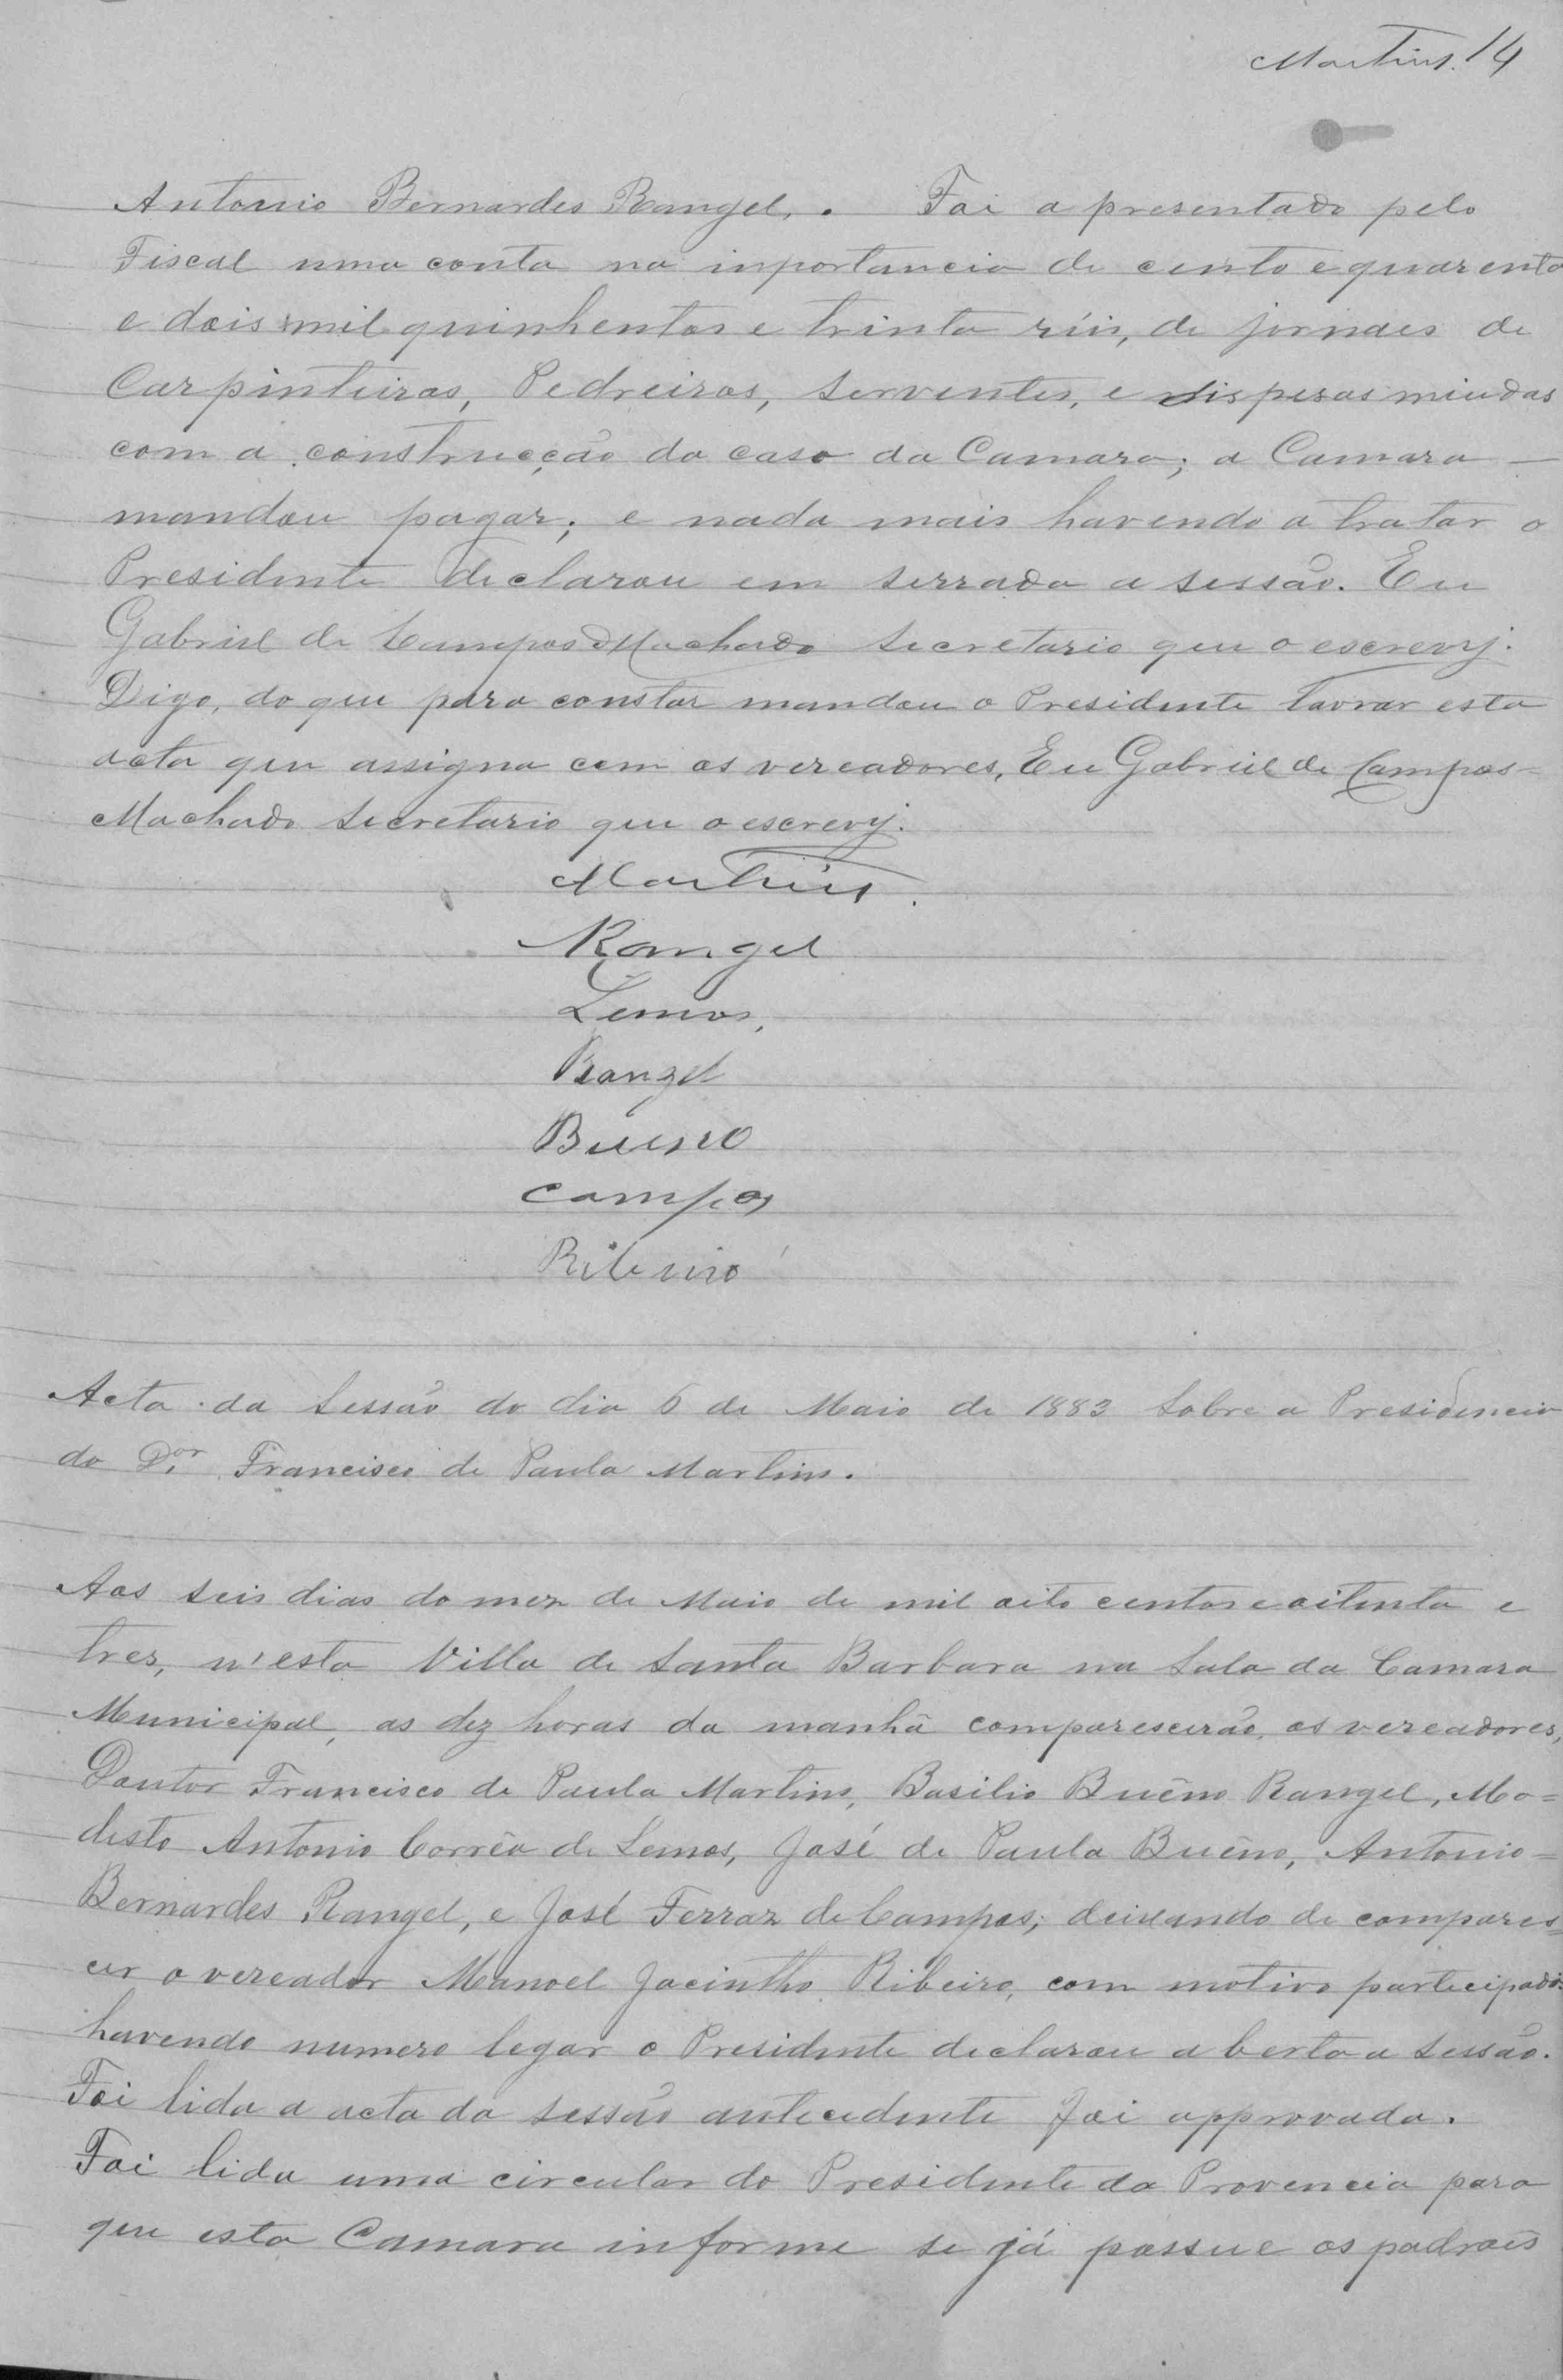 Martins. 14
Antonio Bernardes Rangel. Foi apresentado pelo
Fiscal uma conta na inportancia de cento e quarenta
e dois mil quinhentos e trinta réis, de jornaes de
Carpinteiros, Pedreiros, serventes, e dispesas miudas
com a construcção da casa da Camara; a Camara —
mandou pagar; e nada mais havendo a tratar o
Presidente declarou em serrada a sessão. Eu
Gabriel de Campos Machado secretario que o escrevj.
Digo, do que para constar mandou o Presidente lavrar esta
acta que assigna com os vereadores, Eu Gabriel de Campos=
Machado secretario que o escrevj.
Martins.
Rangel
Lemos,
Rangel
Bueno
Campos
Ribeiro
Acta da Sessão do dia 6 de Maio de 1883 Sobre a Presidencia
do Dor. Francisco de Paula Martins.
Aos seis dias do mez de Maio de mil oito centos e oitenta e
tres, n'esta Villa de Santa Barbara na Sala da Camara
Municipal, as dez horas da manhã compareserão, os vereadores,
Doutor Francisco de Paula Martins, Basilio Buêno Rangel, Mo=
desto Antonio Corrêa de Lemos, José de Paula Buêno, Antonio=
Bernardes Rangel, e José Ferraz de Campos; deixando de compares=
cer o vereador Manoel Jacintho Ribeiro, com motivo participado.
havendo numero legar o Presidente declarou aberta a sessão.
Foi lida a acta da sessão antecedente foi approvada.
Foi lida uma circular do Presidente da Provencia para
que esta Camara informe se já possue os padrois